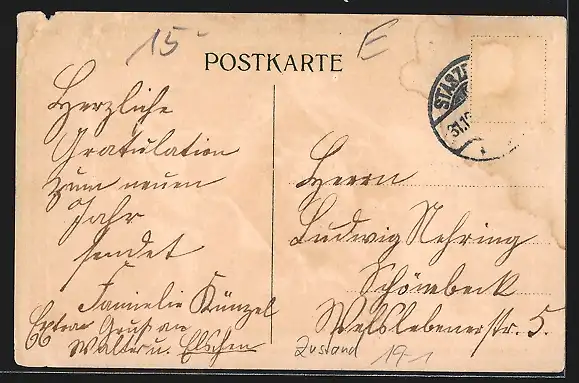 15
E
POSTKARTE
Herzliche
Gratulation
zum neuen
Jahr
sendet
Familie Künzel
Extra Gruß an
Walter u. Elschen
STASZF
31.12
Herrn
Ludwig Nehring
Schönebeck
Welslebenerstr. 5.
Zustand 19-